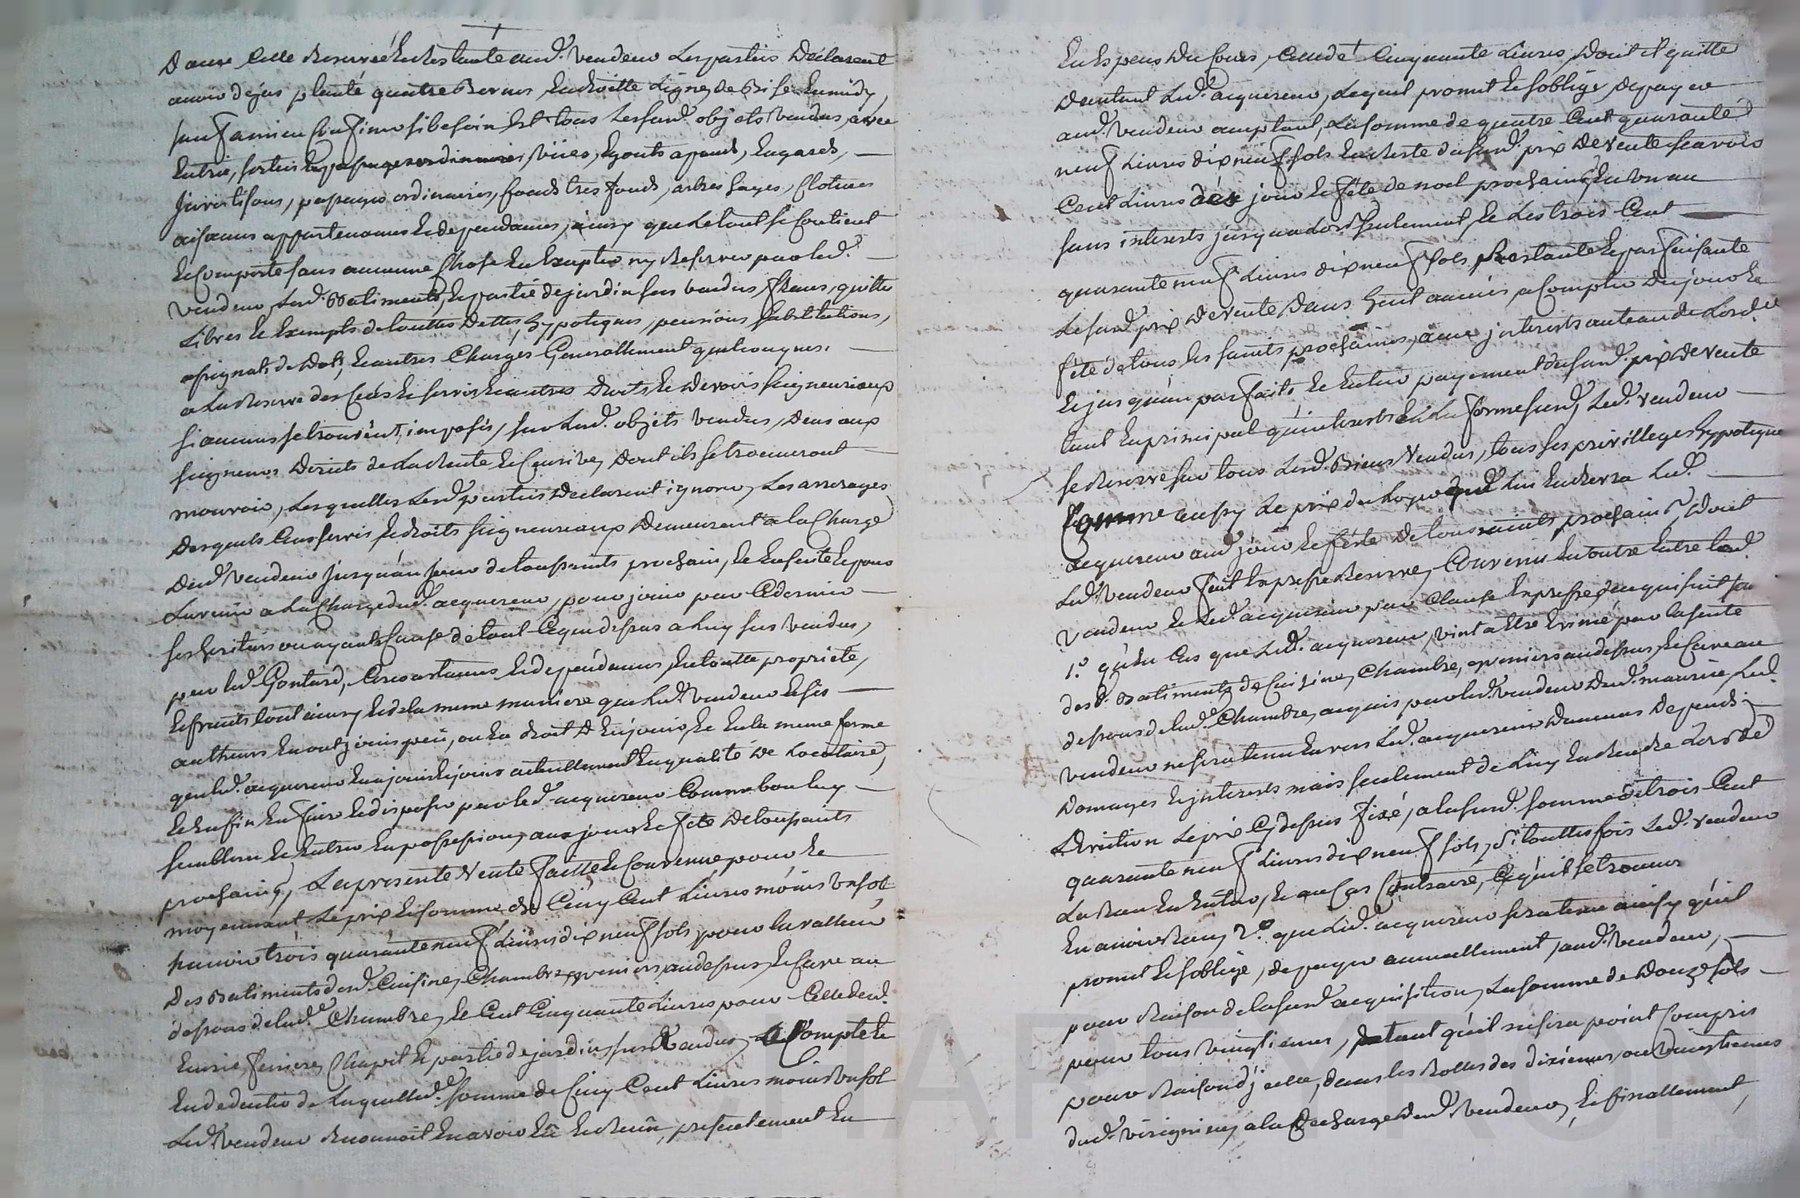 D'avec Celle Reservée Restante aud.t vendeur Les parties Déclarent
avoir déjas planté quatre Bornes En droitte Ligne, de Bise En midy,
sauf à mieux Confiner si besoin Est tous Lessusd.ts objets vendus, avec
Entrée, sorties passages ordinaires, vües, Egouts, Regards,
jmmutisons, passages ordinaires, fonds tres fonds, arbres hayes, Clotures
aisances appartenances Et dependances, ainsy que Le tout se Contient
Et Comporte sans aucune Chose En Excepter ny Reserver par led.t
vendeur, Lesd.ts Batiments, Et partie de jardin sus vendus, francs, quitte
Libres Et Exempts de touttes Dettes, hypoteques, pensions, substitutions,
assignats de Dots, Et autres Charges Generallement quelconques.
a La Reserve des Cens Et servis Et autres Droits Et Devoirs seigneuriaux
si aucuns se trouvent imposés, sur Lesd.ts objets vendus, Deus aux
seigneurs Directs de La Rente Et Censive, Dont ils se trouveront
mouvoir, Lesquelles Lesd.ts parties Déclarent ignorer, Les arrerages
Desquels Cens servis Et droits seigneuriaux Demeurent a la Charge
Dud.t vendeur jusqu'au jour de toussaints prochain, Et Ensuite Et pour
Lavenir a La Charge dud.t acquereur, pour jouir par Ce dernier
ses heritiers ou ayants Cause de tout Ce qui dessus a Luy sus vendus,
par led.t Gontard, Circonstances Et dependances, En toutte proprieté,
Et fruits tout ainsy Et de la meme maniere que Led.t vendeur Et ses
autheurs En ont joüis peü, ou Eu droit D'En jouir, Et En la meme forme
que led.t acquereur En a joui Et jouit actuellement En qualité De Locataire,
Et Enfin En faire Et disposer par led.t acquereur Comme bon luy
semblera Et Entrer En possession, aux jour Et fête De toussaints
prochains, La presente Vente faitte Et Convenüe pour Et
moyennant Le prix Et somme de Cinq Cent Livres moins un sol
scavoir trois quarante neuf Livres dix neuf sols pour la valleur
Des Batiments desd.ts Cuisine, Chambre greniers au dessus, Et Cave au
dessous de lad.te Chambre, Et Cent Cinquante Livres pour Celle de
Ecurie, feniere, Chapit Et partie de jardin sus Vendus, a Compte Et
En deduction de Laquelle d.te somme de Cinq Cent Livres moins un sol
Led.t vendeur Reconnoit En avoir Eü Et Recû, presentement En
En Especes Du Cours, Celle de Cinquante Livres, Dont il quitte
D'autant Led.t acquereur, Lequel promet Et s'oblige, de payer
aud.t vendeur acceptant, La somme de quatre Cent quarante
neuf Livres dix neuf sols En Reste du susd.t prix De vente scavoir
Cent Livres dès jour Et fête de noel prochains En un an
sans interests jusqu'alors seulement, Et Les trois Cent
quarante neuf Livres dix neuf sols, Restante Et parfaisante
Le susd.t prix De vente Dans huit années, a Compter du jour Et
fête de tous les saints prochains, avec jnterests au taux de Lordce
Et jusqu'au parfait, Et Entier payement du susd.t prix De vente
tant En principal qu'interests En La forme susd.te, Led.t vendeur
se Reserve sur tous Lesd.ts Biens Vendus, tous ses privilleges hypoteques
Comme aussy Le prix du Loyer que Lui En devra Led.t
acquereur aud.t jour Et fête De toussaints prochains Dont
Led.t vendeur fait Expresse Reserve, Convenu En outre Entre Led.t
vendeur Et Led.t acquereur par Clause Expresse, Ce qui suit
1.o qu'au Cas que Led.t acquereur vint a Etre Evincé pour la suite
desd.ts Batiments de Cuisine, Chambre, greniers au dessus, Et Caveau
dessous de lad.te Chambre, acquis par led.t vendeur Dud.t maurice, Led.t
vendeur ne sera tenu Envers Led.t acquereur D'aucuns Depends,
Domages Et jnterests mais seulement de Luy En Rendre Lors de
L'Eviction Le prix Cy dessus fixé, a la susd.te somme de trois Cent
quarante neuf Livres dix neuf sols, si touttes fois Led.t vendeur
La Recu En Entier, Et au Cas Contraire, Ce qu'il se trouvera
En avoir Recu, 2.o que Led.t acquereur sera tenu ainsy qu'il
promet Et s'oblige, de payer annuellement, aud.t vendeur,
pour Raison de la susd.te acquisition, La somme de Douze sols
pour tous vingtiemes, pendant qu'il ne sera point Compris
pour Raison d'jcelle, dans les Rolles des dixiemes, ou vingtiemes
dud.t virigneux, a la Decharge dud.t vendeur, Et finallement,